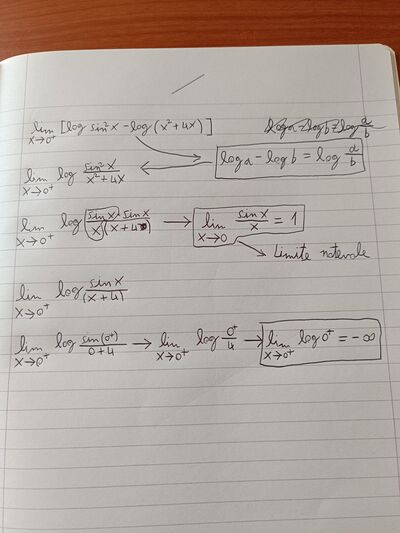 lim x→0⁺ [log sin²x - log(x²+4x)] loga - logb = log a/b
lim x→0⁺ log sin²x / x²+4x ← loga - logb = log a/b
lim x→0⁺ log sinx · sinx / x · (x+4) → lim x→0 sinx / x = 1
→ Limite notevole
lim x→0⁺ log sinx / (x+4)
lim x→0⁺ log sin(0⁺) / 0+4 → lim x→0⁺ log 0⁺ / 4 → lim x→0⁺ log 0⁺ = -∞